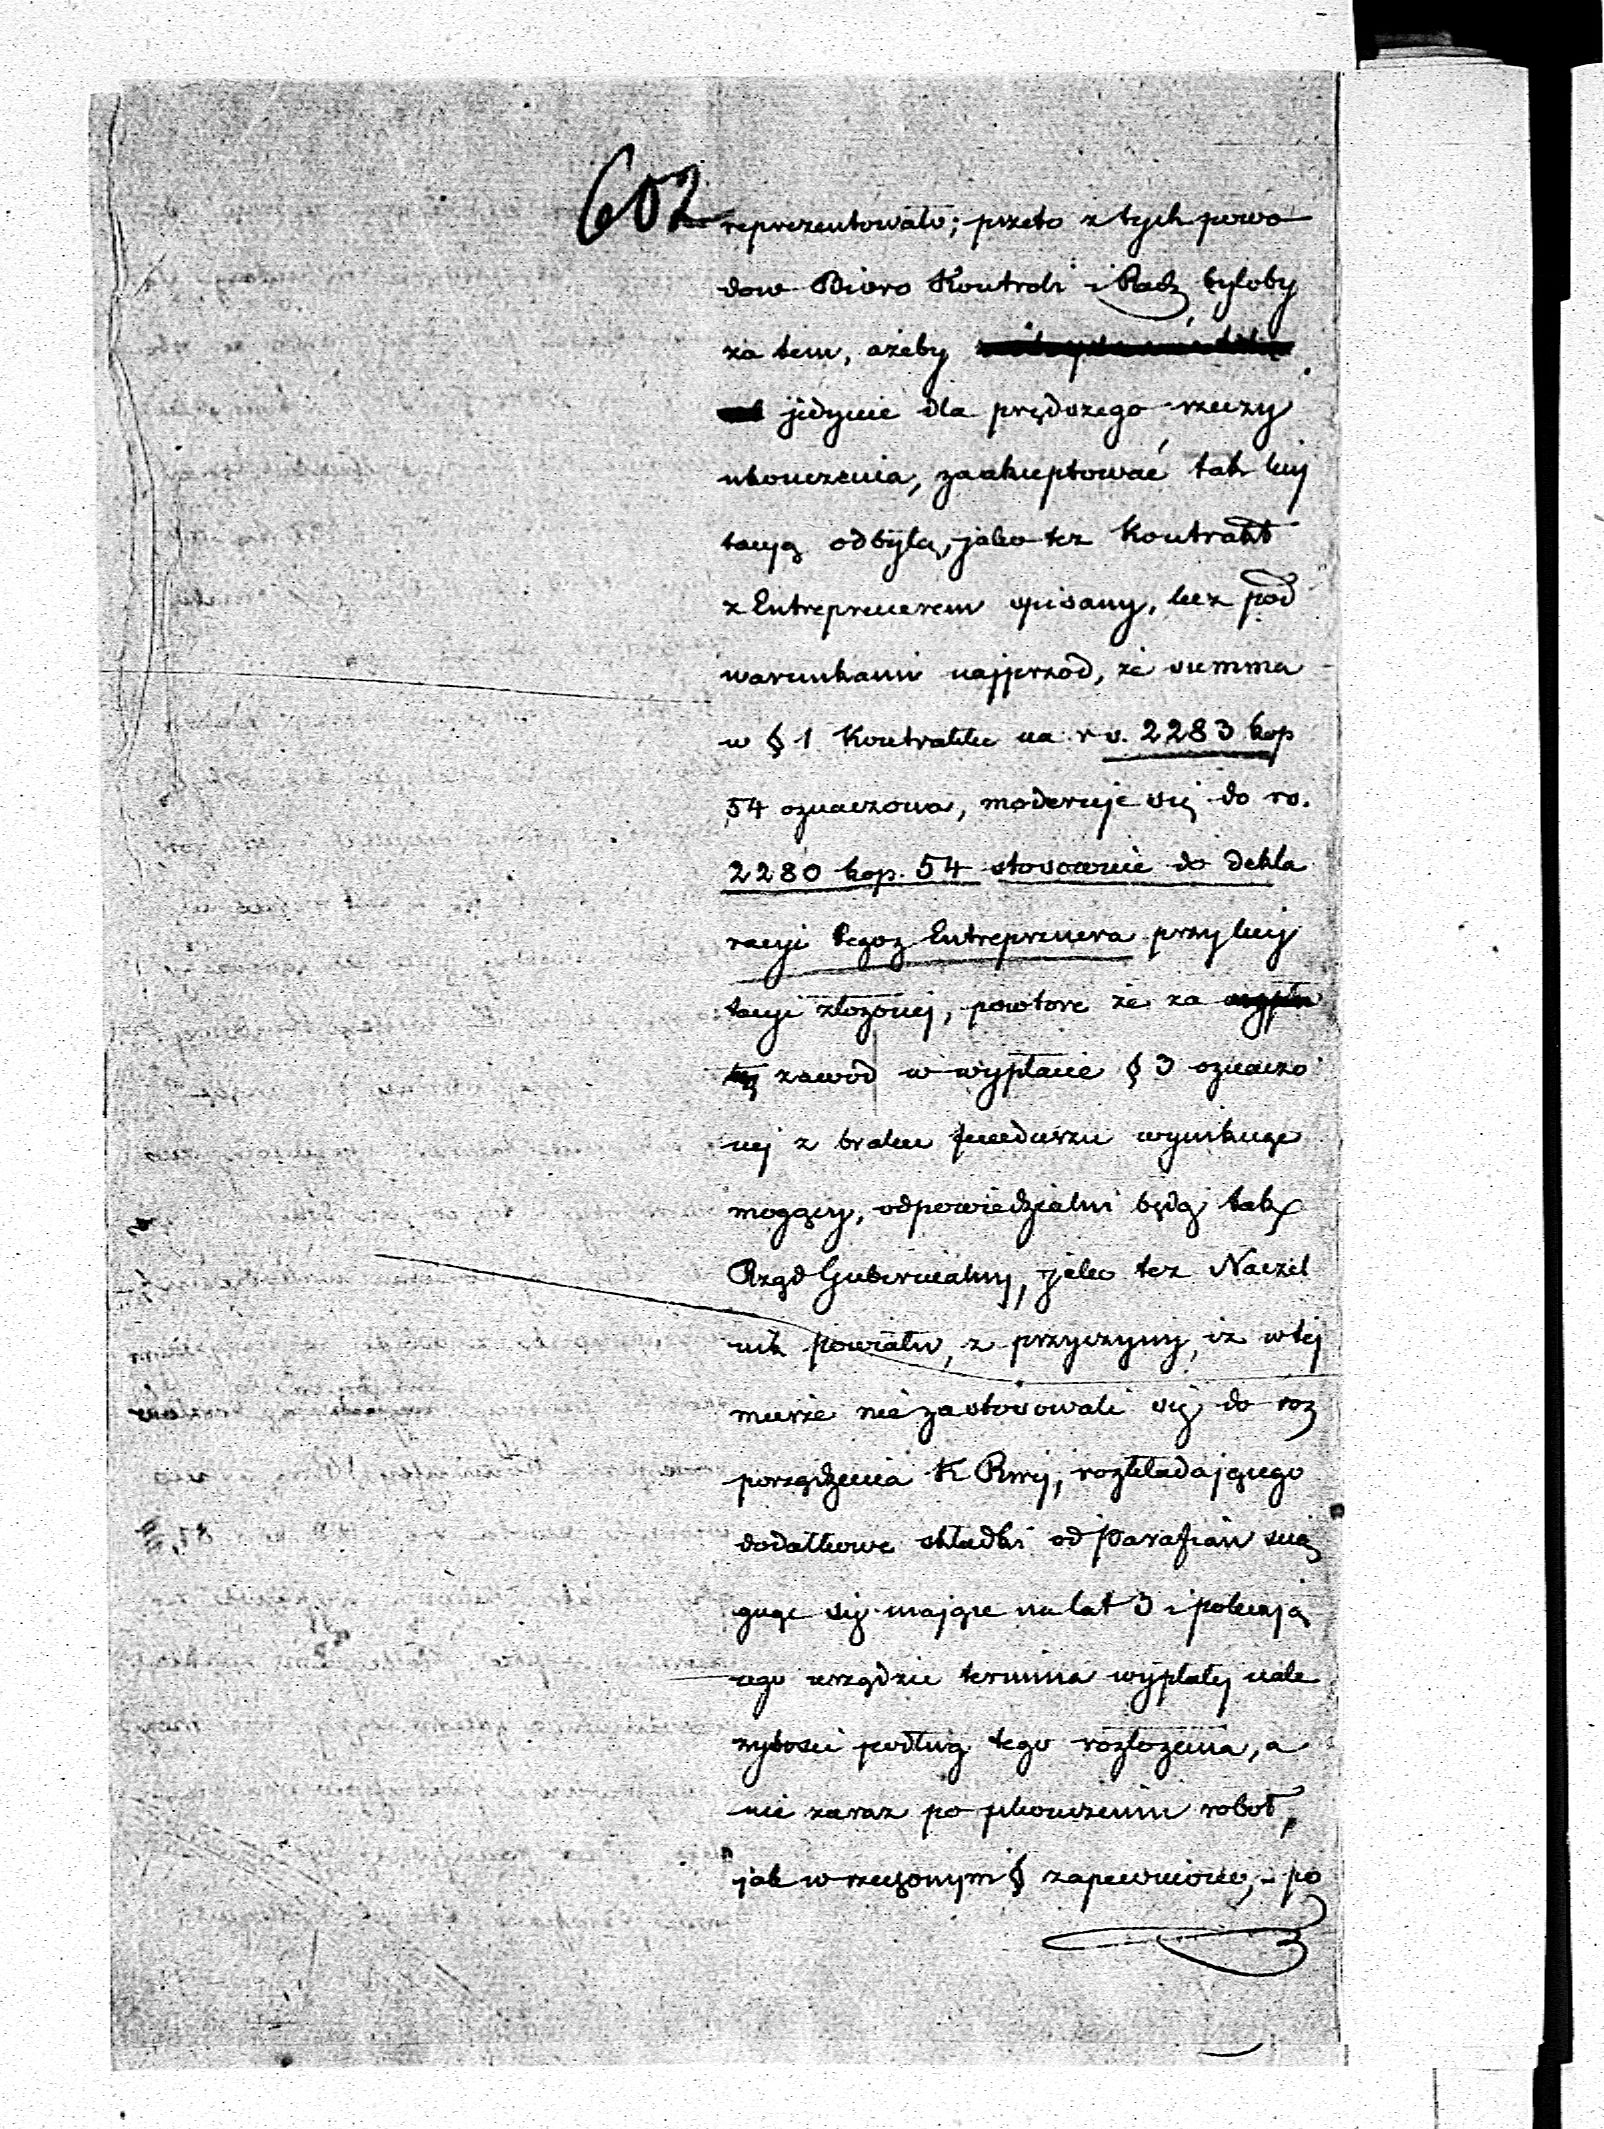 602
reprezentowało; przeto z tych powo
dow Biuro Kontroli i Rach byłoby
za tem, ażeby
jedynie dla prędszego rzeczy
ukonczenia, zaakceptować tak licy
tacyą odbytą, jako też Kontrakt
z Entreprenerem spisany, lecz pod
warunkami najprzod, że summa
w § 1 Kontraktu na rs. 2283 kop
54 oznaczona, moderuje się do rs.
2280 kop. 54 stosownie do dekla
racyi tegoz Entreprenera przy licy
tacyi złozonej, powtore że za
zawod w wypłacie § 3 oznaczo
nej z braku funduszu wyniknąc
mogący, odpowiedzialni będą tak
Rząd Gubernialny, jako tez Naczel
nik powiatu, z przyczyny, iz w tej
mierze nie zastosowali się do roz
porządzenia K Rwej, rozkładającego
dodatkowe składki od Parafian ścią
gnąc się mające na lat 3 i polecają
cego urządzic termina wypłaty nale
zytosci podług tego rozłozenia, a
nie zaraz po ukonczeniu robot,
jak w rzeczonym § zapewniono, po